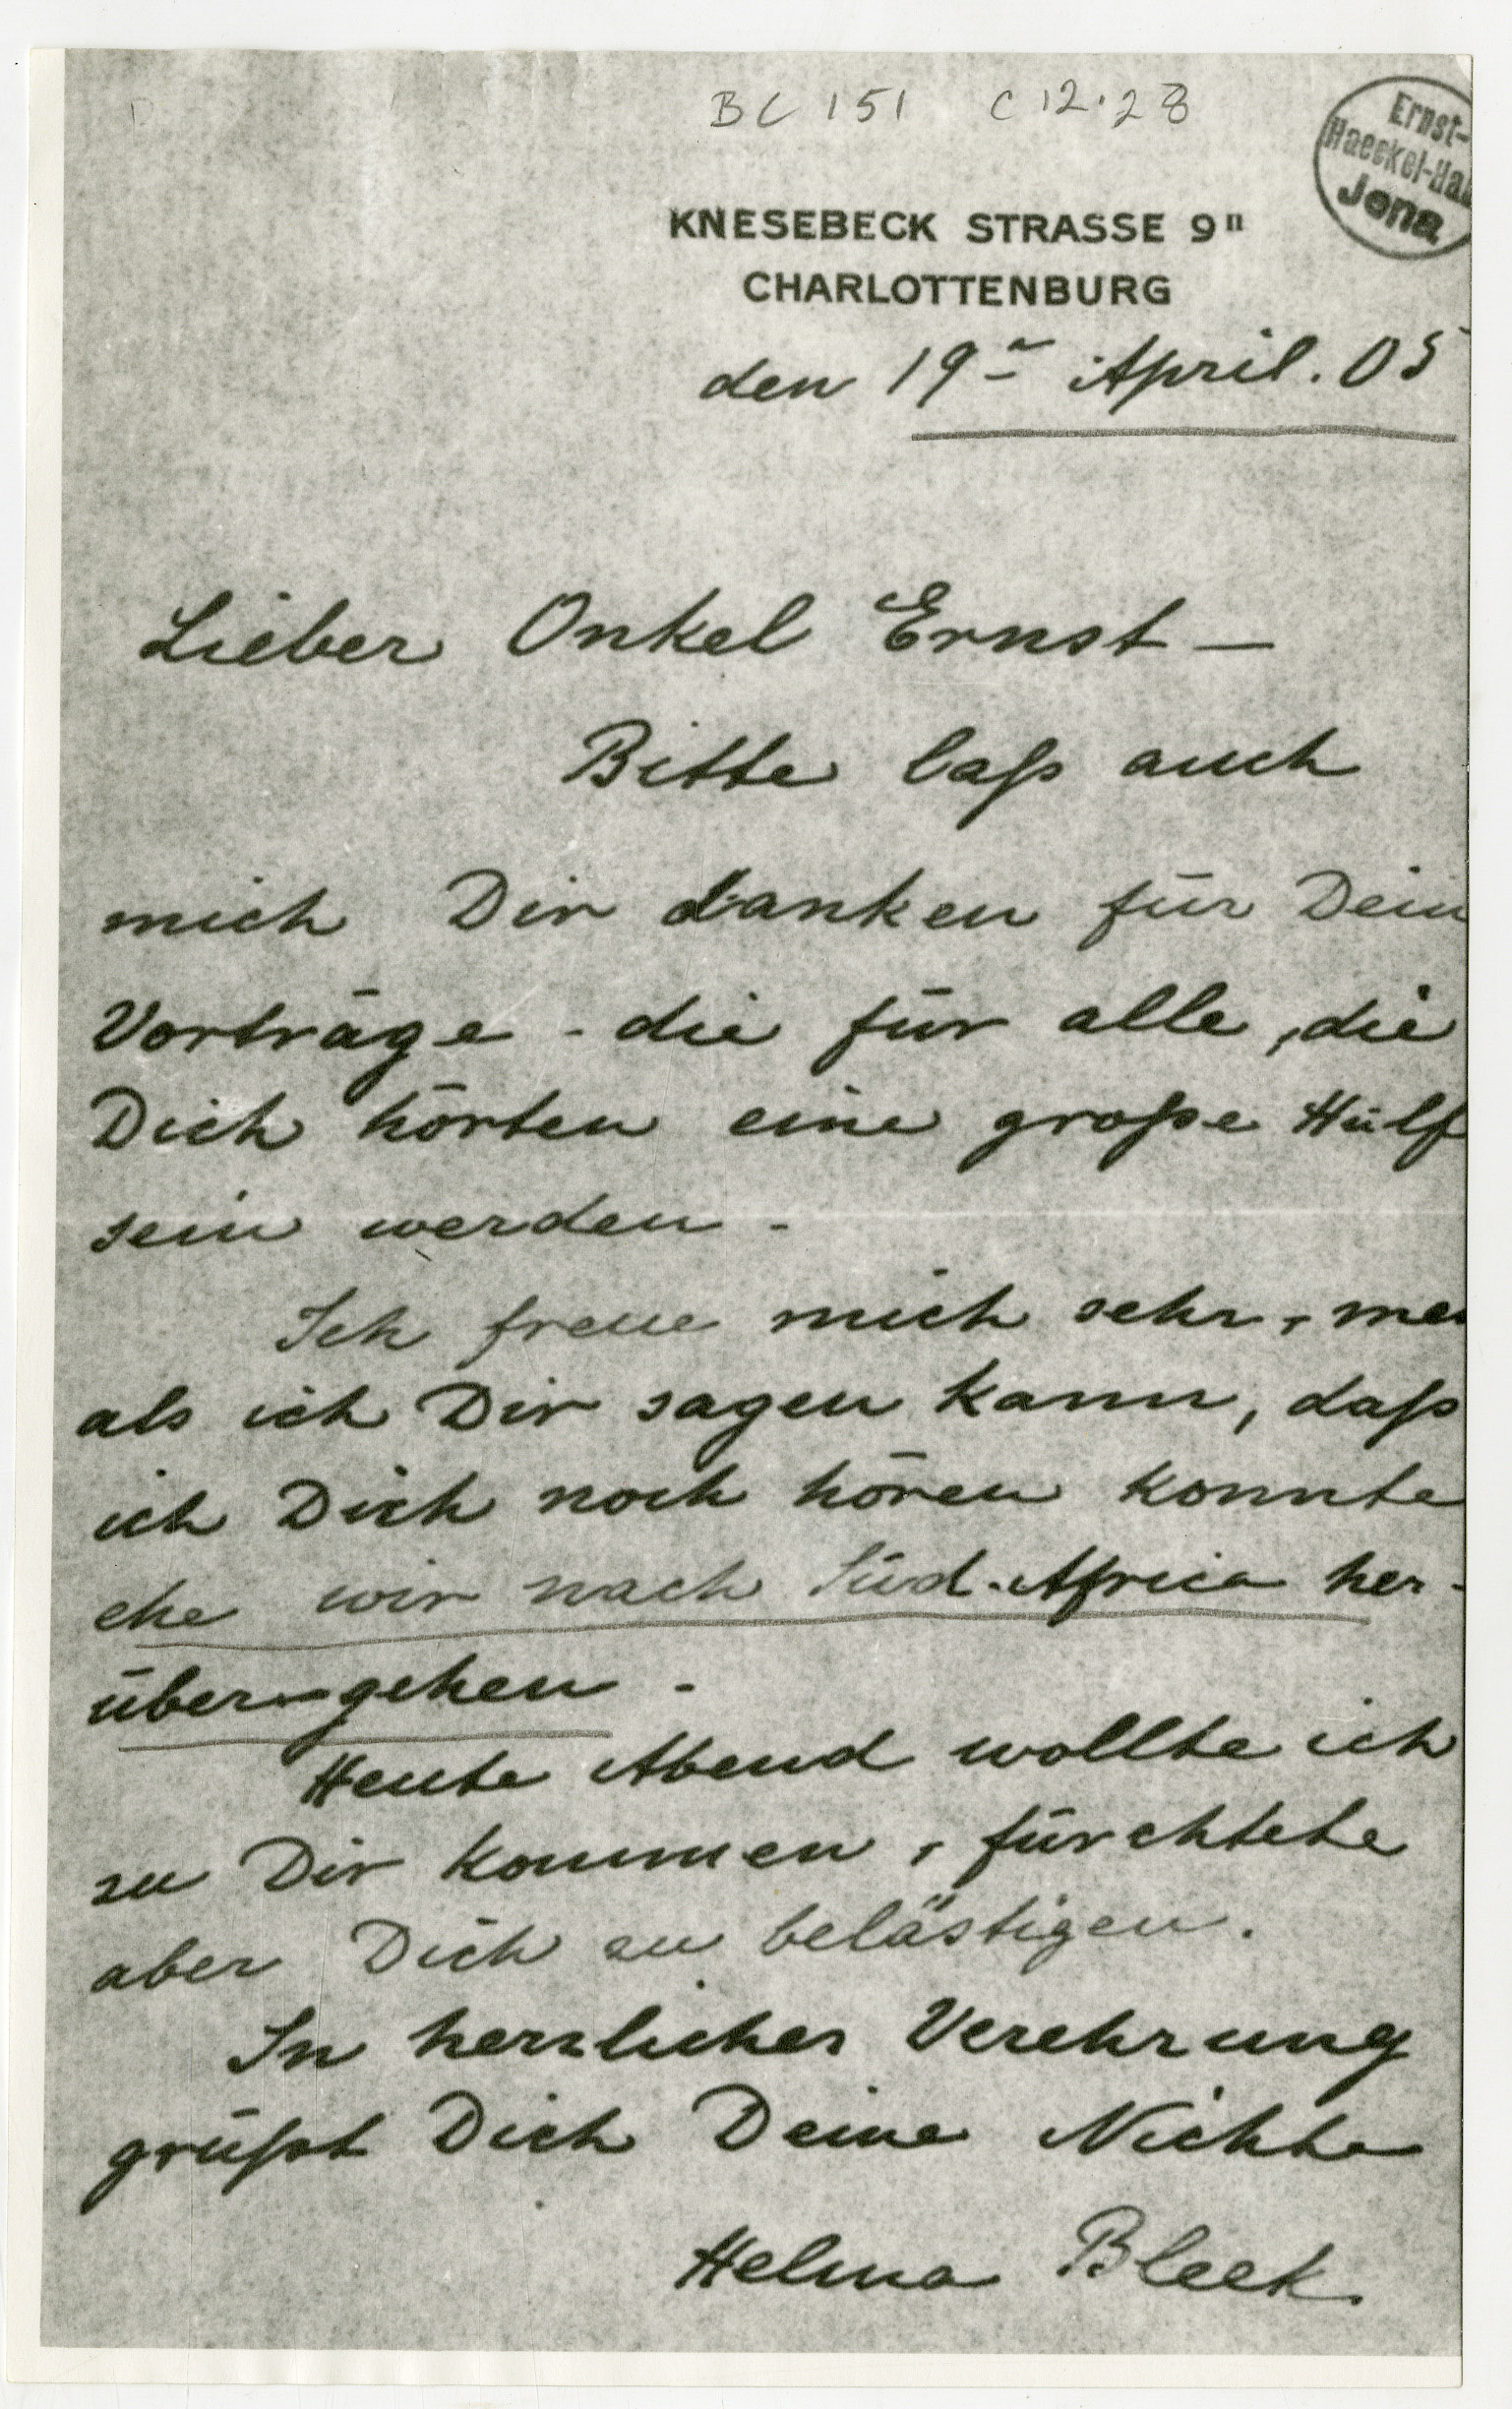 BC 151 C 12.28
Ernst-
Haeckel-Ha
Jena
KNESEBECK STRASSE 9"
CHARLOTTENBURG
den 19n April. 05
Lieber Onkel Ernst —
Bitte laß auch
mich Dir danken für Dein
Vorträge - die für alle, die
Dich hörten eine große Hülf
sein werden -
Ich freue mich sehr, meh
als ich Dir sagen kann, daß
ich Dich noch hören konnte
ehe wir nach Süd-Africa her-
über-gehen -
Heute Abend wollte ich
zu Dir kommen, fürchtete
aber Dich zu belästigen.
In herzlicher Verehrung
grüßt Dich Deine Nichte
Helma Bleek.